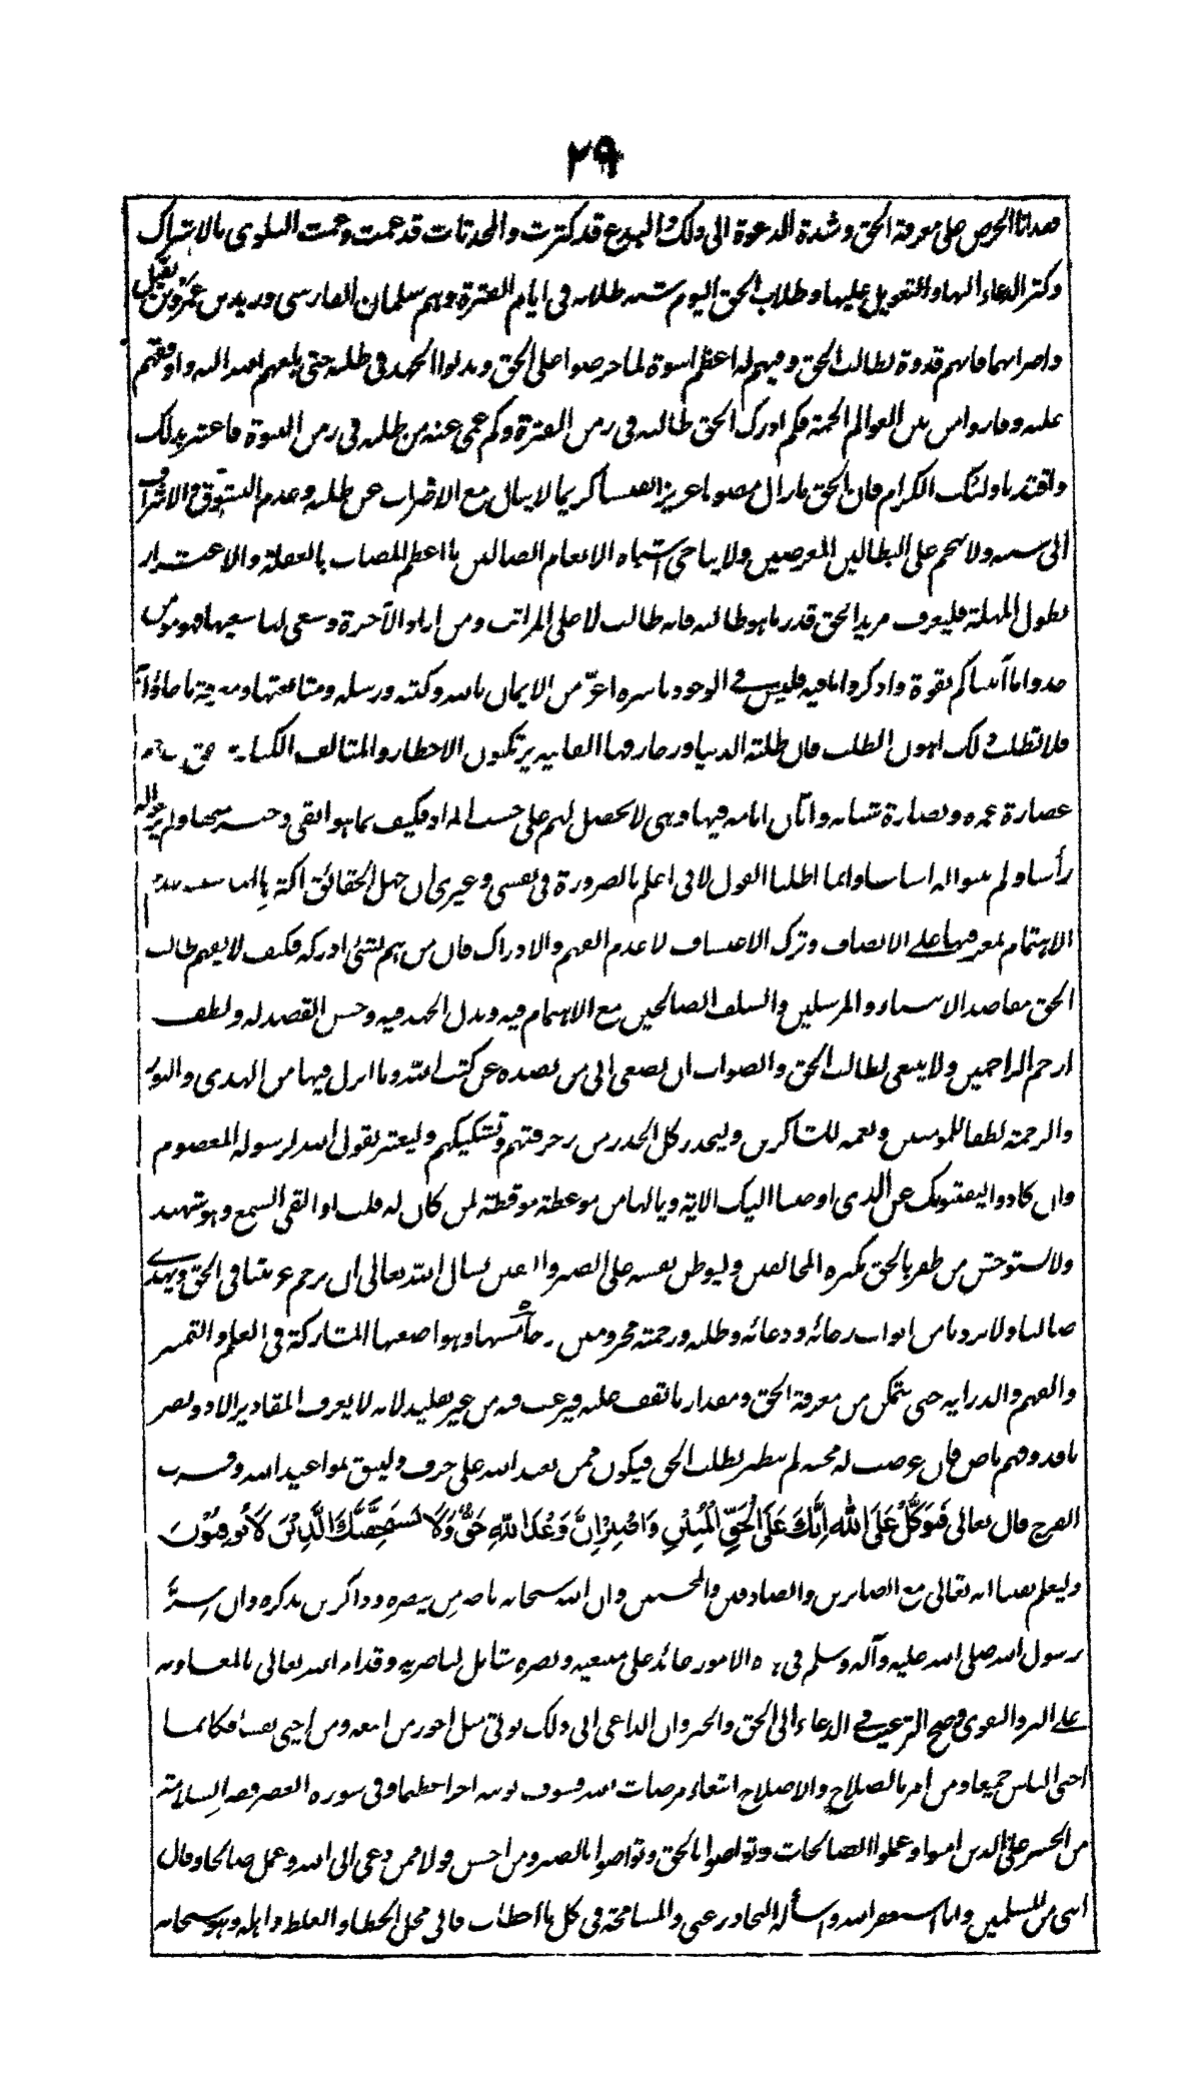 ٢٩
الحرص على معرفة الحق وشدة الدعوة الى ذلك البدع قد كثرت والمحدثات قد عمت وعمت البلوى بالاشراك
وكثر الدعاء اليها والتعويل عليها وطلاب الحق اليوم شبه طلابه في ايام الفترة وهم سلمان الفارسى وزيد بن عمرو بن نفيل
واضرابهما فانهم قدوة لطالب الحق وفيهم له اعظم اسوة لما حرصوا على الحق وبذلوا الجهد في طلبه حتى بلغهم الله واوقفهم
عليه وفازوا من بين العوالم الجمة فكم ادرك الحق طالبه في زمن الفترة وكم عمى عنه من طلبه في زمن النبوة فاعتبر بذلك
واقتد باولئك الكرام فان الحق ما زال مصونا عزيزا نفيسا كريما لا ينال مع الاضراب عن طلبه وعدم التشوق والاشراف
الى سببه ولا يهجم على البطالين المعرضين ولا يناجى اشباه الانعام الضالين ما اعظم المصاب بالغفلة والاغترار
بطول المهلة فليعرف مريد الحق قدر ما هو طالبه فانه طالب لاعلى المراتب ومن اراد الآخرة وسعى لها سعيها فهو مومن
خذوا ما آتيناكم بقوة واذكروا ما فيه فليس في الوجود باسره اعز من الايمان بالله وكتبه ورسله ومتابعتها ومعرفة ما جاؤا به
فلا تطلب ذلك اهون الطلب فان طلبة الدنيا وزخارفها الفانيه يرتكبون الاخطار والمتالف الكبار حتى
عصارة عمره ونضارة شبابه وابان ايامه فيها وهى لا تحصل لهم على حسب المراد فكيف بما هو ابقى
رأسا ولم اساسا وانما اطلنا القول لانى اعلم بالضرورة في نفسى وغيرى ان جهل الحقائق اكثره
الاهتمام بمعرفتها على الانصاف وترك الاعتساف لا عدم الفهم والادراك فان من هم لشئ ادركه فكيف لا يفهم طالب
الحق مقاصد الانبياء والمرسلين والسلف الصالحين مع الاهتمام فيه وبذل الجهد فيه وحسن القصد له ولطف
ارحم الراحمين ولا ينبغى لطالب الحق والصواب ان يصغى الى من يصده عن كتب الله وما انزل فيها من الهدى والنور
والرحمته لطفا للمومنين ونعمه للشاكرين وليحذر كل الحذر من زخرفتهم وتشكيكهم وليعتبر بقول الله لرسوله المعصوم
وان كادوا ليفتنونك عن الذى اوحينا اليك الاية ويا لها من موعظة موقظة لمن كان له قلب او القى السمع وهو شهيد
ولا يستوحش من ظفر بالحق بكثره المخالفين وليوطن نفسه على الصبر واليقين نسال الله تعالى ان يرحم غربتنا في الحق ويهدى
ضالنا ولا يردنا من ابواب رجائه ودعائه وطلبه ورحمته محرومين وهو اصعبها المشاركة في العلم والتميز
والفهم والدرايه حتى يتمكن من معرفة الحق ومقدار ما تقف عليه فيرغب فيه من غير تقليد لانه لا يعرف المقادير الا ذو بصر
نافذ وفهم ماض فان عرضت له محنه لم لطلب الحق فيكون ممن يعبد الله على حرف وليثق بمواعيد الله وقرب
الفرج قال تعالى فَتَوَكَّلْ عَلَى اللهِ إِنَّكَ عَلَى الْحَقِّ الْمُبِيْنِ وَاصْبِرْ إِنَّ وَعْدَ اللهِ حَقٌّ وَلَا يَسْتَخِفَّنَّكَ الَّذِيْنَ لَا يُوقِنُوْنَ
وليعلم يقينا انه تعالى مع الصابرين والصادقين والمحسنين وان الله سبحانه ناصر من ينصره وذاكر من يذكره وان
رسول الله صلى الله عليه وآله وسلم في الامور عائد على متبعيه ونصره شامل لناصريه وقد امر الله تعالى بالمعاونه
على البر والتقوى وصح الترغيب في الدعاء الى الحق والخير وان الداعى الى ذلك يوتى مثل اجور من اتبعه ومن احيى نفسا فكانما
احيى الناس جميعا ومن امر بالصلاح والاصلاح ابتغاء مرضات الله فسوف يوتيه اجرا عظيما وفى سوره العصر قصر السلامة
من الخسر على الذين امنوا وعملوا الصالحات وتواصوا بالحق وتواصوا بالصبر ومن احسن قولا ممن دعى الى الله وعمل صالحا وقال
اننى من المسلمين وانا استغفر الله واسأله التجاوز عنى والمسامحة في كل ما اخطات فانى محل الخطا والغلط واهله وهو سبحانه